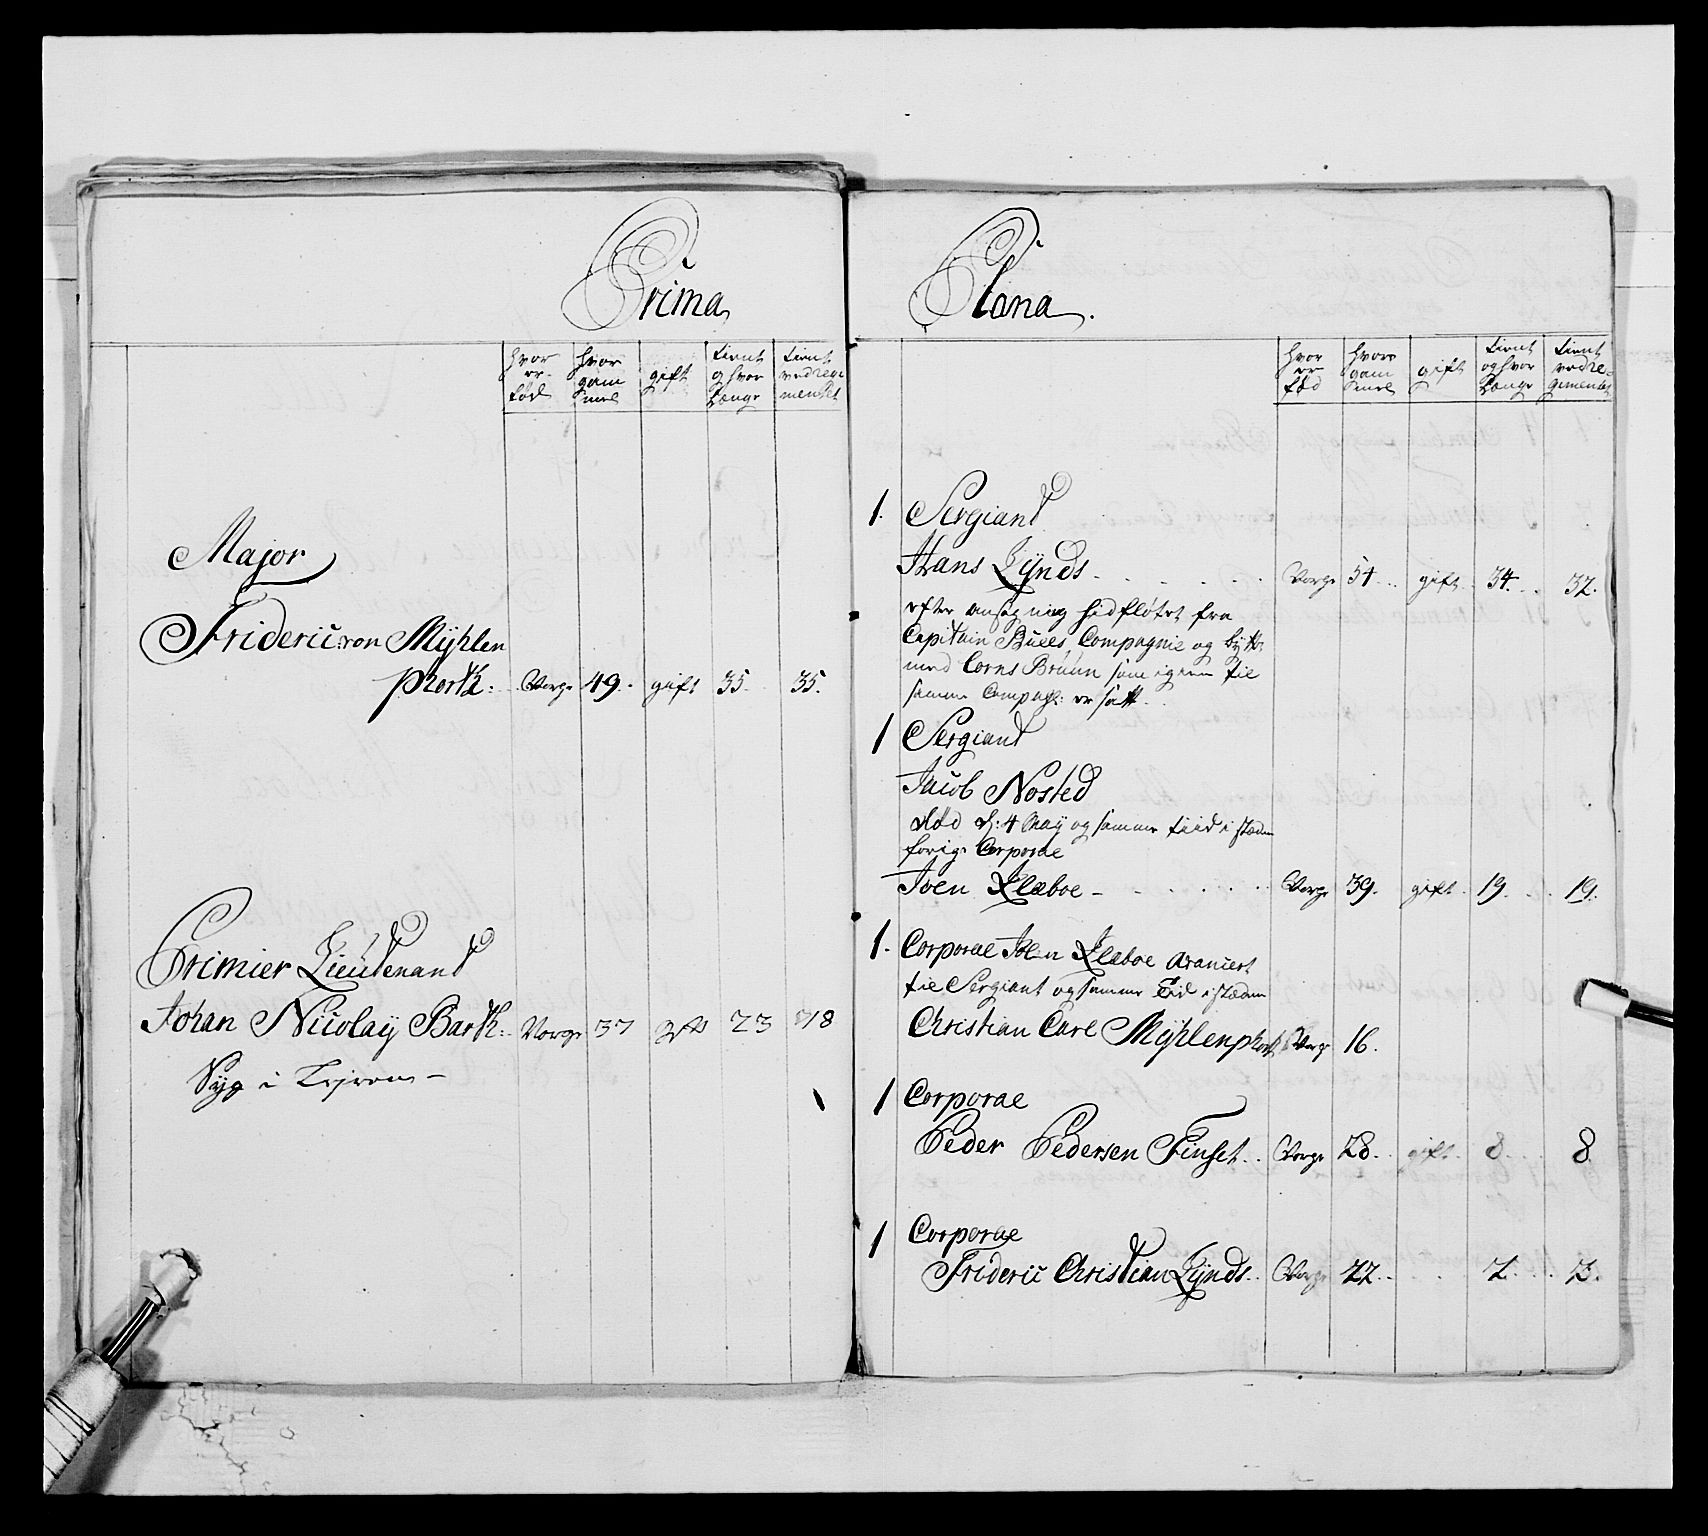 Prima
Hvor er fød
Hvor gam mel
gift
tient og hvor Længe
tient ved regi mentet
Major
Frideric von Mÿhlen
phort: Norge 49. gift 35 35.
Premier Lieutenand
Johan Nicolaÿ Barth: Norge 37 gift 23 18
Syg i
Plana.
Hvor er fød
Hvor gam mel
gift
tient og hvor Længe
tient ved re= gimentet
1. Sergiant
Hans Lÿnds Norge 54 gift 34. 32.
efter ansøgning hidfløtet fra
Capitain Buees Compagnie og bÿtt
med Corns Bruun som igien til
samme Compag: er satt.
1 Sergiant
Jacob Nosted
død d: 4 Maÿ og samme tiid i stæden
forige Corporal
Joen Klæboe Norge 39. gift 19. 19.
1. Corporal Joen Klæboe avancert
til Sergiant og samme Tid i stæden
Christian Carl Mÿhlenphort Norge 16.
1 Corporal
Peder Pedersen Finset Norge 28. gift. 8 8
1 Corporal
Frideric Christian Lÿnds Norge 22.